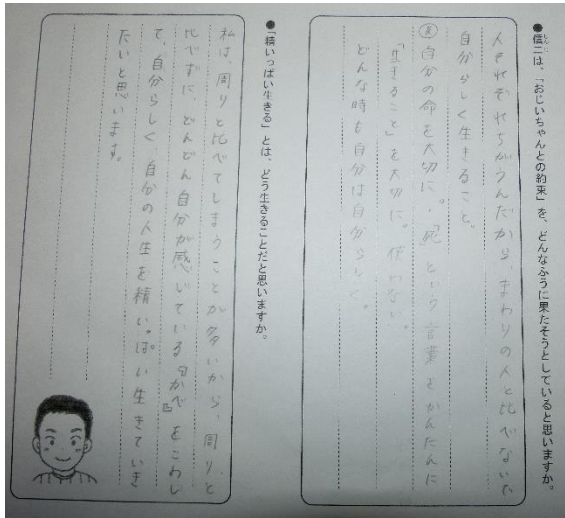 ●信二は、「おじいちゃんとの約束」を、どんなふうに果たそうとしていると思いますか。
人それぞれちがうんだから、まわりの人と比べないで
自分らしく生きること。
自分の命を大切に。「死」という言葉をかんたんに
「生きること」を大切に。使わない。
どんな時も自分は自分らしく。
●「精いっぱい生きる」とは、どう生きることだと思いますか。
私は、周りと比べてしまうことが多いから、周りと
比べずに、どんどん自分が感じている『かべ』をこわし
て、自分らしく、自分の人生を精いっぱい生きていき
たいと思います。